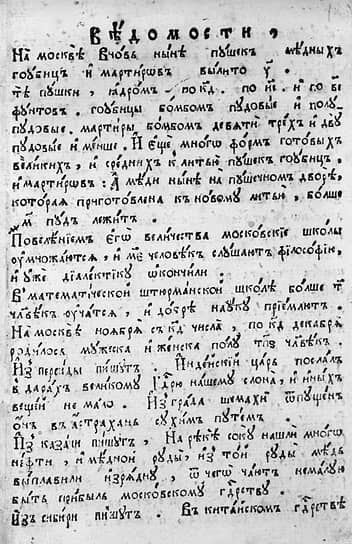 Вѣдомости,
На москвѣ вновь нынѣ пушекъ мѣдныхъ
гоубицъ и мартировъ вылито у҃.
тѣ пушки, ꙗдромъ по кд҃. по иі҃. и по ві҃
фунтовъ. гоубицы бомбомъ пудовые и полу
пудовые. мартиры бомбомъ девяти трехъ и дву
пудовые и менше. И еще много формъ готовыхъ
великихъ, и среднихъ к литью пушекъ гоубицъ,
и мартировъ: А мѣди нынѣ на пушечномъ дворѣ,
которая приготовлена къ новому литью, болше
м҃ пудъ лежитъ.
Повелѣнїемъ егѡ величества московские школы
оумножаются, и м҃е человѣкъ слушаютъ філософїю,
и уже дїалектїку ѡкончили.
В математїческой штюрманской школѣ болше т҃
члвѣкъ оучатся, и добрѣ науку прїемлютъ.
На москвѣ ноября съ кд҃ числа, по кд҃ декабря
родилось мужеска и женска полу тп҃ѕ члвѣкъ.
Из персїды пишутъ. Индѣйскїй царь послалъ
в дарахъ великому Гдрю нашему слона, и иныхъ
вещей не мало. Из града шемахи ѿпущенъ
онъ в астрахань сухимъ путемъ.
Из казани пишутъ, На рѣкѣ соку нашли много
нефти, и мѣдной руды, из той руды мѣдь
выплавили изрядну, ѿ чего чаютъ немалую
быть прибыль московскому гдрству.
Изъ сибири пишутъ. В китайскомъ гдрствѣ